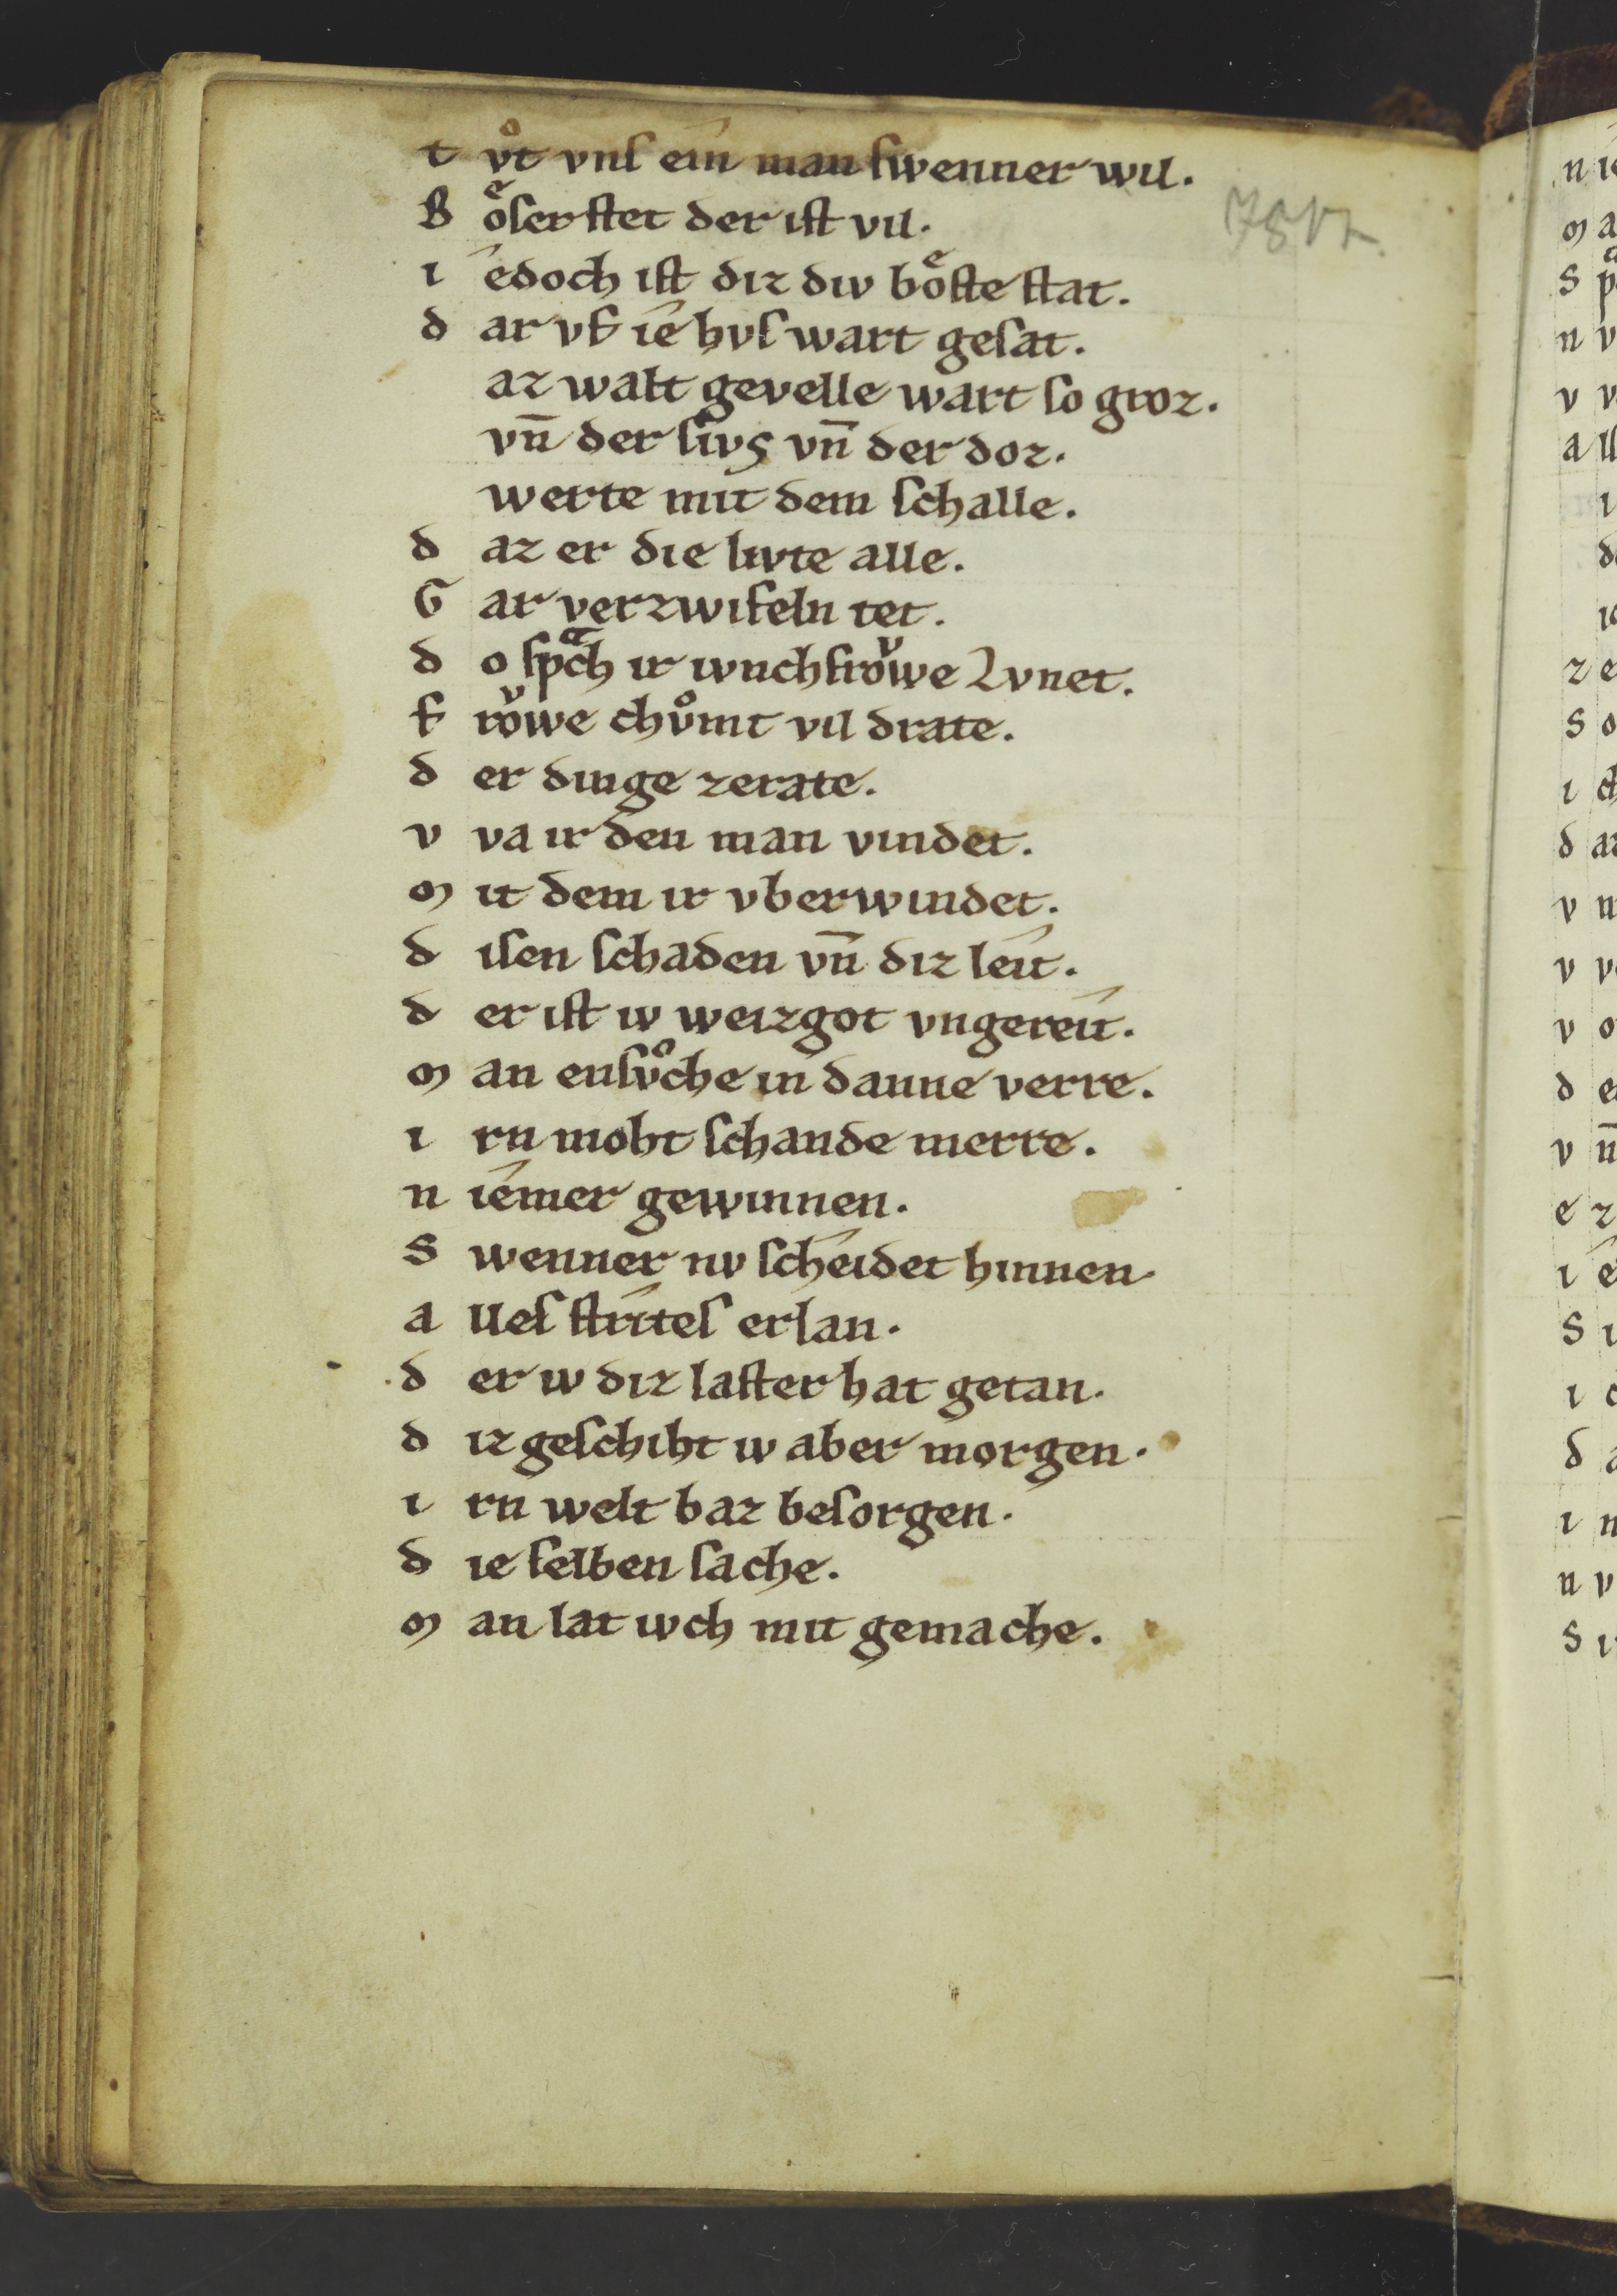 t vͦt vnſ ein man ſwenner wil.
B oͤſer ſtet der iſt vil.
i edoch iſt diz div boͤſte ſtat.
d ar vf ie hvſ wart geſat.
az walt gevelle wart ſo groz.
vn̄ der ſivs vn̄ der doz.
werte mit dem ſchalle.
d az er die livte alle.
G ar verzwifeln tet.
d o ſpͣch ir ivnchfroͮwe Lvnet.
f roͮwe chvͦmt vil drate.
d er dinge zerate.
v va ir den man vindet.
m it dem ir vberwindet.
d iſen ſchaden vn̄ diz leit.
d er iſt iv weizgot vngereit.
m an enſvͦche in danne verre.
i rn moht ſchande merre.
n iemer gewinnen.
S wenner nv ſcheidet hinnen.
a lleſ ſtriteſ erlan.
d er iv diz laſter hat getan.
d iz geſchiht iv aber morgen.
i rn welt baz beſorgen.
d ie ſelben ſache.
m an lat ivch mit gemache.